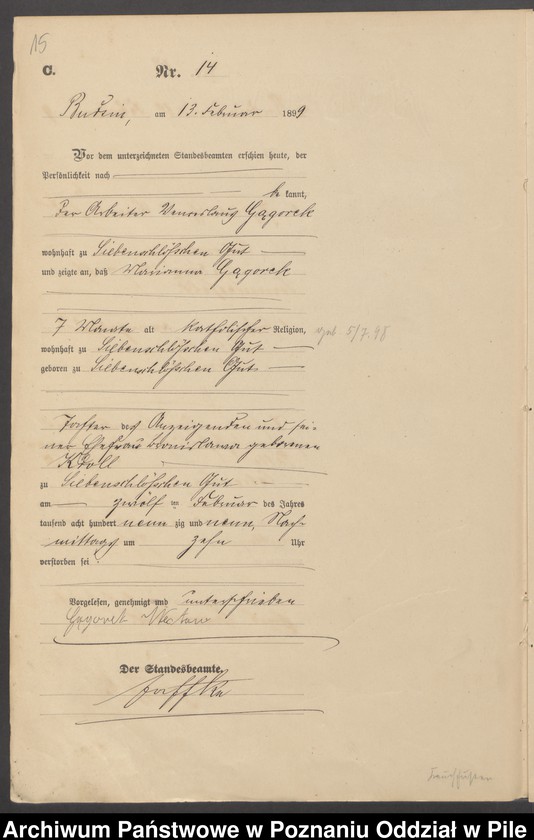 15
C. Nr. 14
Budsin, am 13. Februar 1899
Vor dem unterzeichneten Standesbeamten erschien heute, der
Persönlichkeit nach
be kannt,
der Arbeiter Venceslaus Gagorek
wohnhaft zu Siebenschlößchen Gut
und zeigte an, daß Marianna Gagorek
7 Monate alt katholischer Religion, geb 5/7. 98
wohnhaft zu Siebenschlößchen Gut
geboren zu Siebenschlößchen Gut
Tochter des Anzeigenden und sei-
ner Ehefrau Bronislawa geborenen
Kroll
zu Siebenschlößchen Gut
am zwölf ten Februar des Jahres
tausend acht hundert neun zig und neun, Nach-
mittags um zehn Uhr
verstorben sei.
Vorgelesen, genehmigt und unterschrieben
Gagorek
Der Standesbeamte.
Jaffke
Archiwum Państwowe w Poznaniu Oddział w Pile